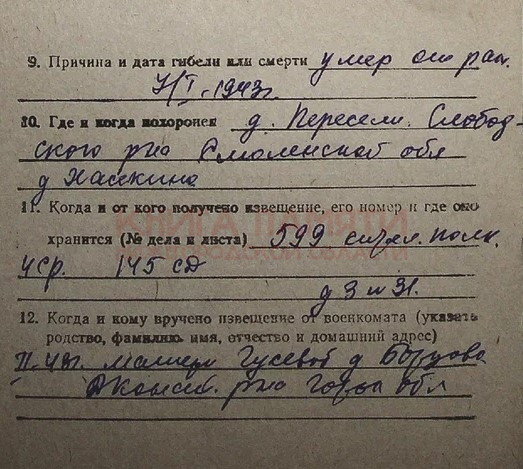 9. Причина и дата гибели или смерти умер от ран.
I-1943г.
10. Где и когда похоронен д. Пересели. Слобод-
ского р-на Смоленской обл
д Хаскина
11. Когда и от кого получено извещение, его номер и где оно
КНИГА ПАМЯТИ
хранится (№ дела и листа) 599 стрел. полк.
145 сд
д 3 л 31.
12. Когда и кому вручено извещение от военкомата (указать
родство, фамилию, имя, отчество и домашний адрес)
матери Гусевой д
р-на обл